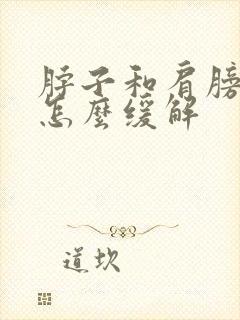 脖子和肩膀
怎麼缓解
道坎